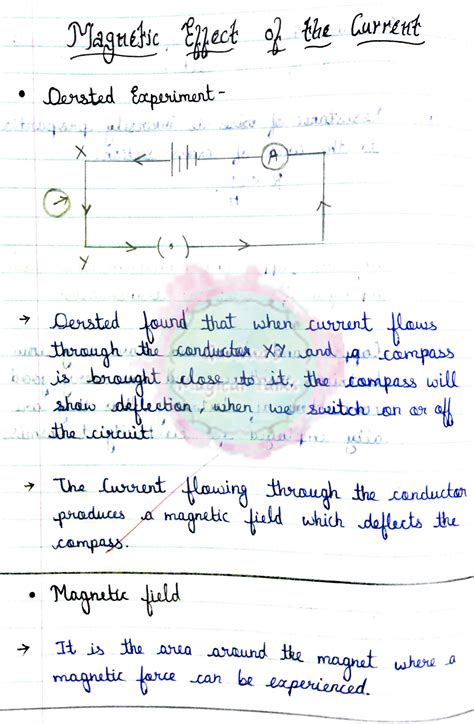 Magnetic Effect of the Current
• Oersted Experiment -
X
A
Y
→ Oersted found that when current flows
through the conductor XY and a compass
is brought close to it, the compass will
show deflection, when we switch on or off
the circuit.
→ The Current flowing through the conductor
produces a magnetic field which deflects the
compass.
• Magnetic field
→ It is the area around the magnet where a
magnetic force can be experienced.